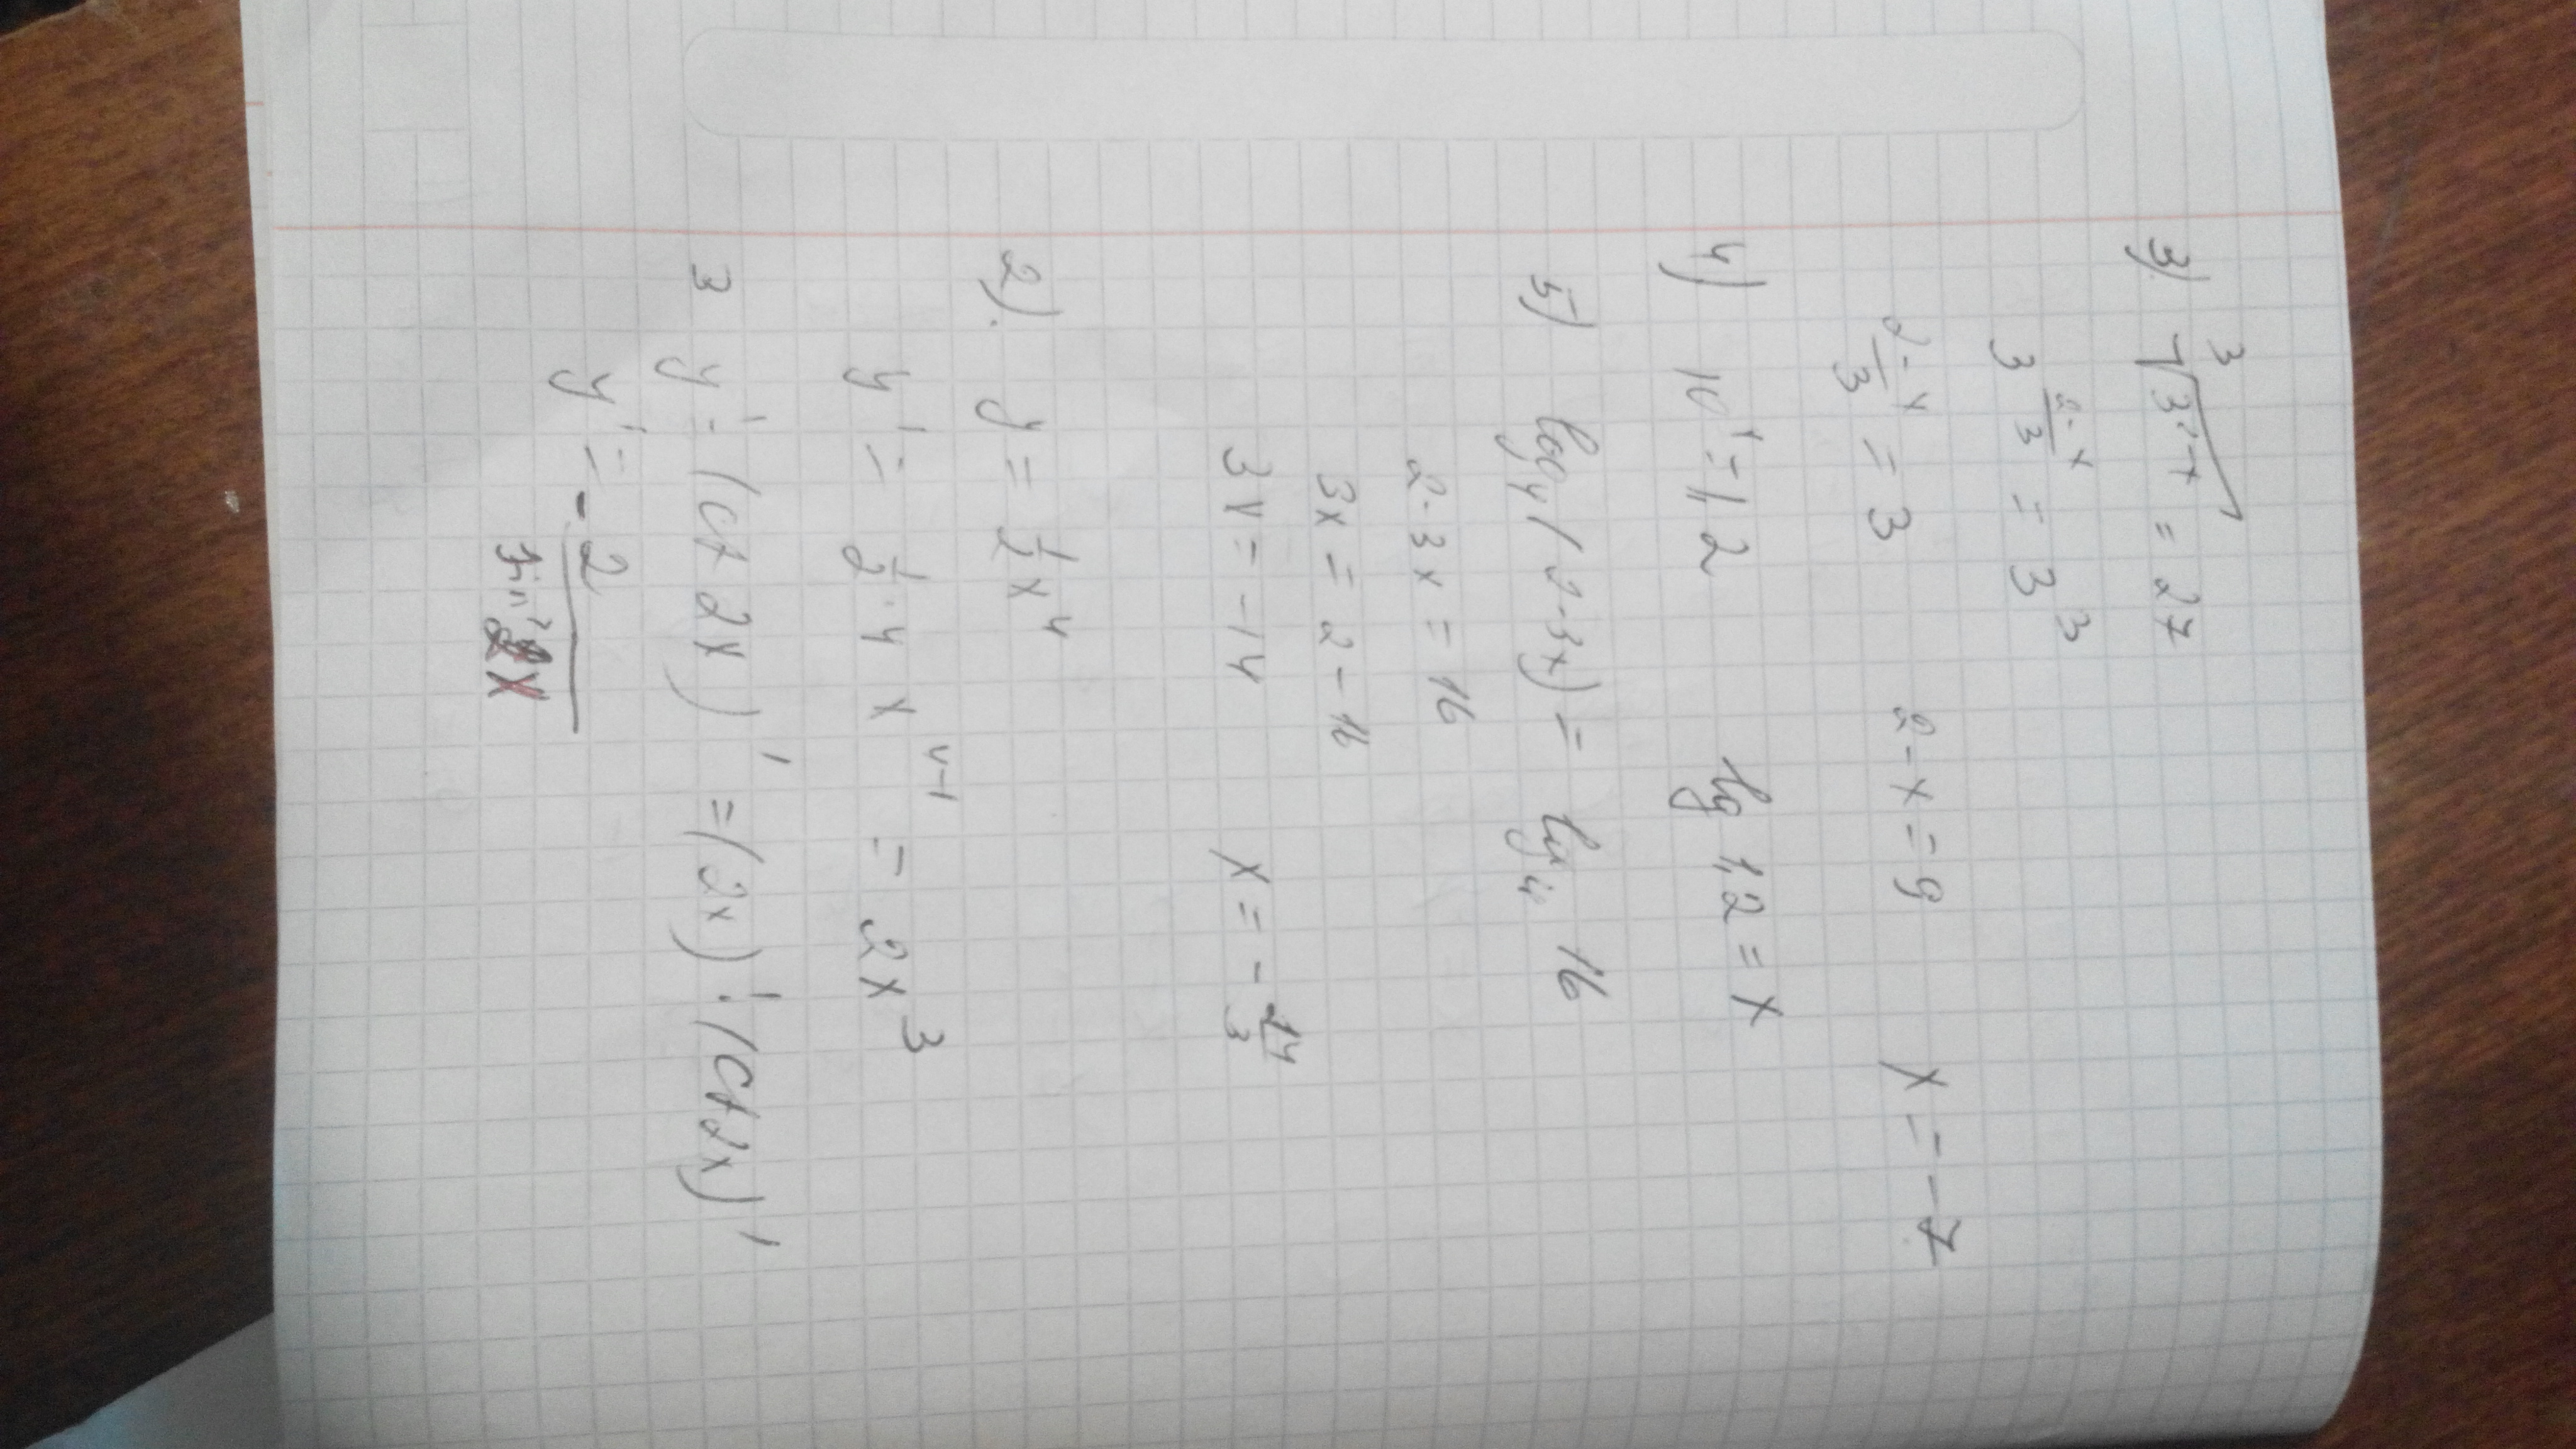 3) ∛(3^(2-x)) = 27
3^((2-x)/3) = 3^3
(2-x)/3 = 3 2-x = 9 x = -7
4) 10^x = 1,2 lg 1,2 = x
5) log₄(2-3x) = log₄ 16
2-3x = 16
3x = 2-16
3x = -14 x = -14/3
2). y = 1/2 x^4
y' = 1/2 · 4 x^(4-1) = 2x^3
3 y' = (ct 2x)' = (2x)' · (ct2x)'
y' = - 2/(sin² 2x)